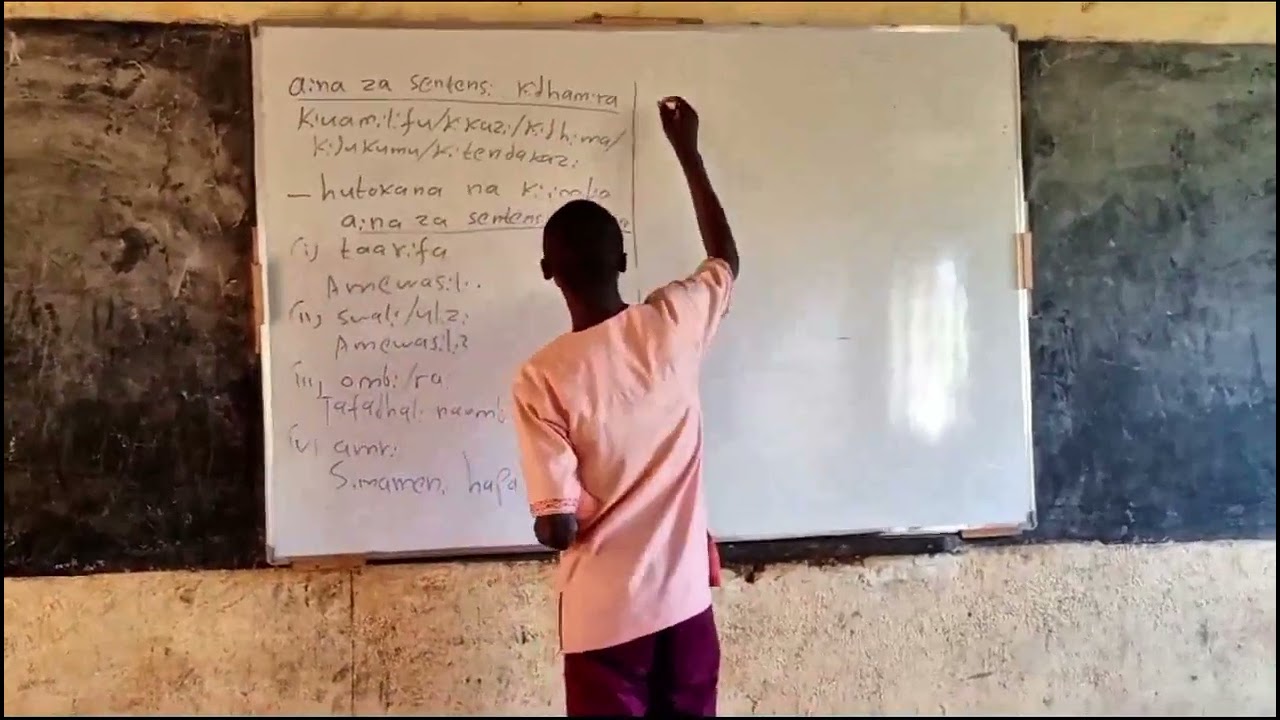 aina za sentensi kidhamira
Kiuamilifu/kikazi/kidhima/
kijukumu/kitendakazi
– hutokana na
aina za sentensi
(i) taarifa
Amewasili.
(ii) swali/ulizi
Amewasili?
(iii) ombi/ra
Tafadhali naomb
(iv) amri
Simameni hapa